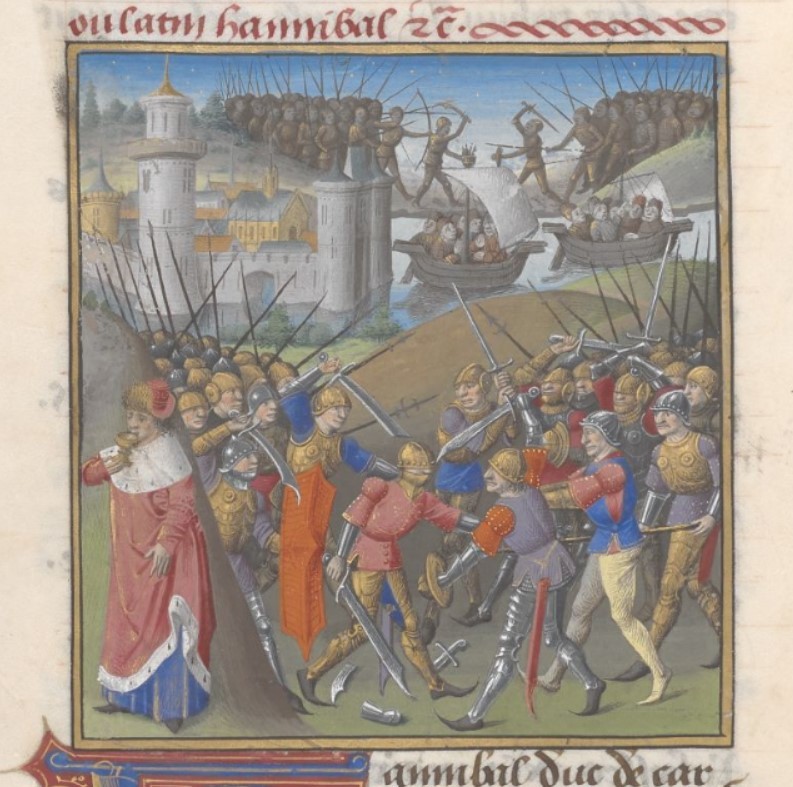 ou latin hannibal ⁊c̃.
annibal duc de car